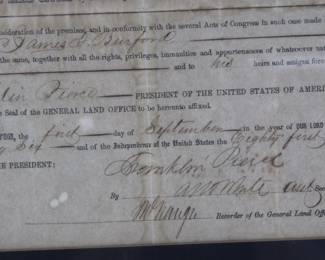 consideration of the premises, and in conformity with the several Acts of Congress in such case made
James
the same, together with all the rights, privileges, immunities and appurtenances of whatsoever nat
and to his heirs and assigns fore
lin Pierce PRESIDENT OF THE UNITED STATES OF AMER
Seal of the GENERAL LAND OFFICE to be hereunto affixed.
the first day of September in the year of OUR LORD
Six and of the Independence of the United States the Eighty first
THE PRESIDENT: Franklin Pierce
By
Recorder of the General Land Off